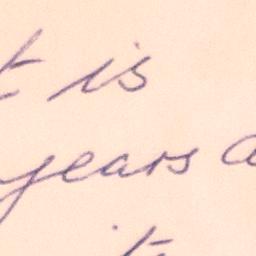 t is
years a
it